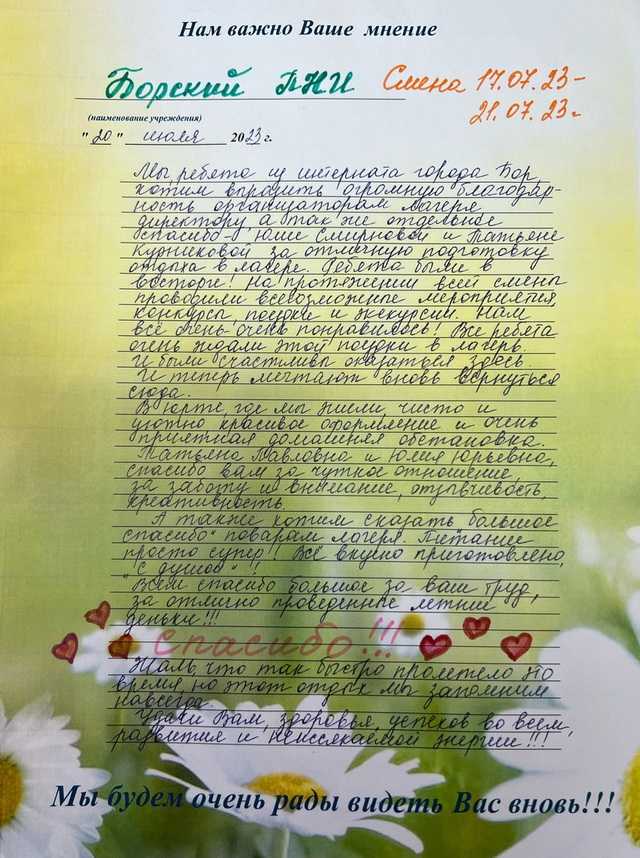 Нам важно Ваше мнение
Борский ПНИ Смена 17.07.23-
21.07.23г
(наименование учреждения)
"20" июля 2023 г.
Мы, ребята из интерната города Бор,
хотим выразить огромную благодар-
ность организаторам лагеря
директору а так же отдельное
спасибо Юлие Смирновой и Татьяне
Курниковой за отличную подготовку
отдыха в лагере. Ребята были в
восторге! На протяжении всей смены
проводили всевозможные мероприятия,
конкурсы, поездки и экскурсии. Нам
всё очень-очень понравилось! Все ребята
очень ждали этой поездки в лагерь.
И были счастливы оказаться здесь.
И теперь мечтают вновь вернуться
сюда.
В юрте, где мы жили, чисто и
уютно красивое оформление и очень
приятная домашняя обстановка.
Татьяна Павловна и Юлия Юрьевна,
спасибо вам за чуткое отношение,
за заботу и внимание, отзывчивость,
креативность.
А также хотим сказать большое
спасибо поварам лагеря. Питание
просто супер!! Всё вкусно приготовлено,
"с душой"!
Всем спасибо большое за ваш труд,
за отлично проведенные летние
деньки!!!
спасибо!!!
Жаль, что так быстро пролетело это
время, но этот отдых мы запомним
навсегда.
Удачи Вам, здоровья, успехов во всем,
развития и неиссякаемой энергии!!!
Мы будем очень рады видеть Вас вновь!!!